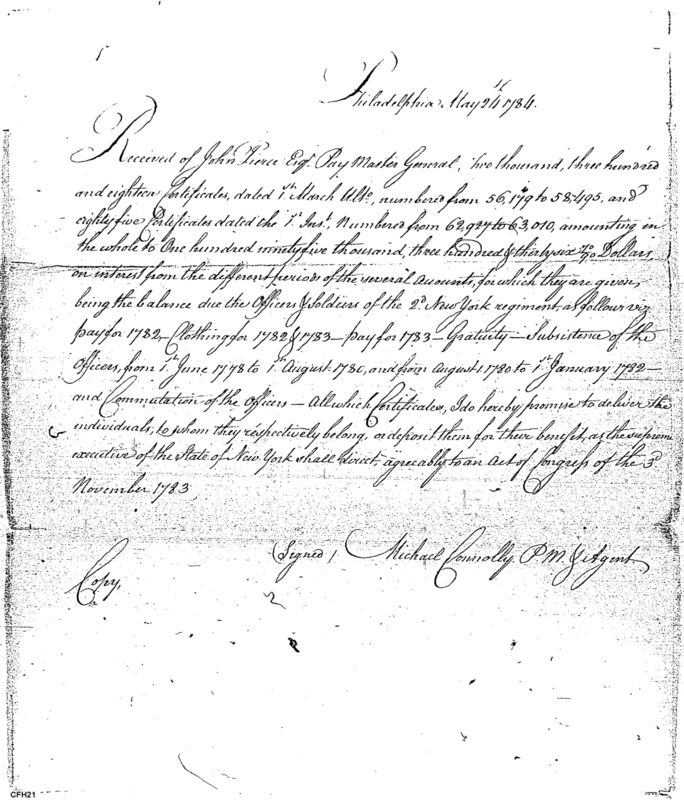 Philadelphia May 24th 1784.
Received of John Pierce Esqr. Pay Master General, two thousand, three hundred
and eighteen Certificates, dated 1st March Ulto, numbered from 56,179 to 58,495, and
eighty five Certificates dated the 1st Inst, Numbered from 62,927 to 63,010, amounting in
the whole to One hundred ninety five thousand, three hundred & thirty six 70/90 Dollars,
on interest from the different periods of the several accounts, for which they are given,
being the balance due the Officers & Soldiers of the 2d New York regiment, as follows viz
pay for 1782, Clothing for 1782 & 1783 — pay for 1783 — Gratuity — Subsistence of the
Officers, from 1st June 1778 to 1st August 1780, and from August 1780 to 1st January 1782 —
and Commutation of the Officers — All which Certificates, I do hereby promise to deliver the
individuals, to whom they respectively belong, or deposit them for their benefit, as the supreme
executive of the State of New York shall direct, agreeably to an Act of Congress of the 3d
November 1783
(Signed) Michael Connolly. P. M. & Agent
Copy.
CFH21